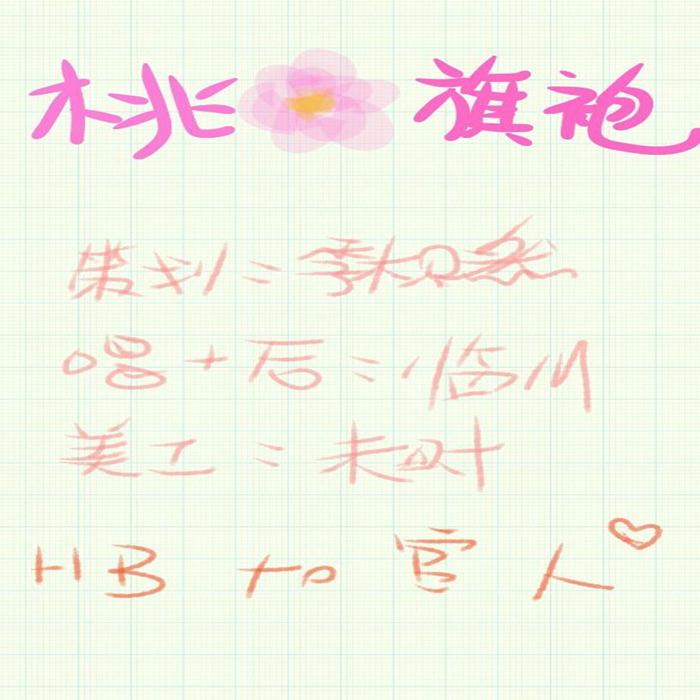 桃 旗袍
策划：
唱+后：临川
美工：未叶
HB to 官人